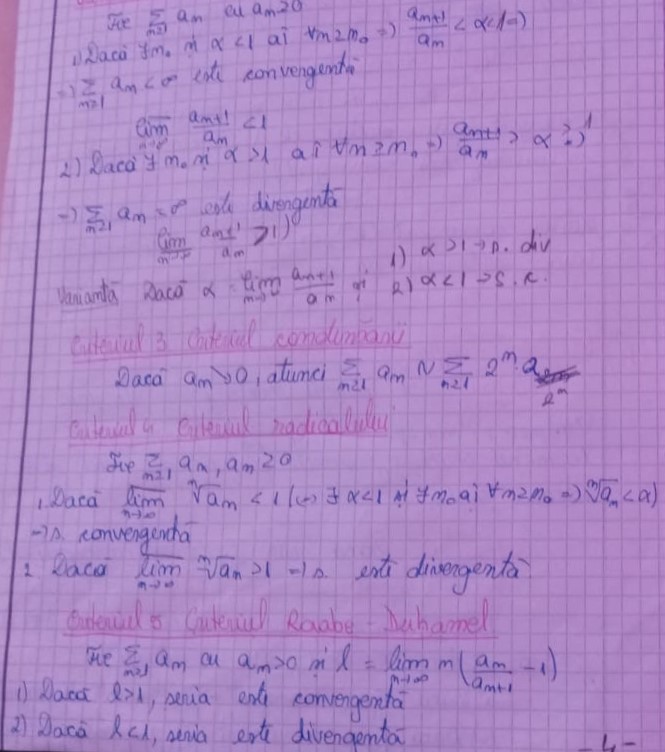 Fie ∑_{n≥1} a_n cu a_n≥0
1) Dacă ∃ n_0 și α<1 aî ∀n≥n_0 => a_{n+1}/a_n < α<1 =>
=> ∑_{n≥1} a_n < ∞ este convergentă
lim̅_{n→∞} a_{n+1}/a_n < 1
2) Dacă ∃ n_0 și α>1 aî ∀n≥n_0 => a_{n+1}/a_n > α
=> ∑_{n≥1} a_n = ∞ este divergentă
lim̲_{n→∞} a_{n+1}/a_n > 1)
Variantă Dacă α = lim_{n→∞} a_{n+1}/a_n și 1) α>1 → s. div
2) α<1 → s. c.
Criteriul 3 Criteriul condensării
Dacă a_n↘0, atunci ∑_{n≥1} a_n ~ ∑_{n≥1} 2^n · a_{2^n}
Criteriul 4 Criteriul radicalului
Fie ∑_{n≥1} a_n, a_n≥0
1. Dacă lim̅_{n→∞} ⁿ√a_n < 1 (<=> ∃ α<1 și ∃ n_0 aî ∀n≥n_0 => ⁿ√a_n < α)
=> s. convergentă
2. Dacă lim̅_{n→∞} ⁿ√a_n > 1 => s. este divergentă
Criteriul 5 Criteriul Raabe-Duhamel
Fie ∑_{n≥1} a_n cu a_n>0 și l = lim_{n→∞} n(a_n/a_{n+1} - 1)
1) Dacă l>1, seria este convergentă
2) Dacă l<1, seria este divergentă